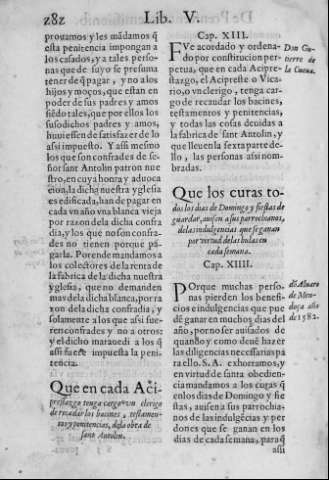 282 Lib. V.
prouamos y les mãdamos q̃
esta penitencia impongan a
los casados, y a tales perso-
nas que de suyo se presuma
tener de q̃ pagar, y no a los
hijos y moços, que estan en
poder de sus padres y amos
siẽdo tales, que por ellos los
susodichos padres y amos,
huuiessen de satisfazer de lo
assi impuesto. Y assi mesmo
los que son confrades de se-
ñor sant Antolin patron nue
stro, en cuya honra y aduoca
cion, la dicha nuestra yglesia
es edificada, han de pagar en
cada vn año vna blanca vieja
por razon dela dicha confra
dia, y los que no son confra-
des no tienen porque pa-
garla. Porende mandamos a
los colectores dela renta de
la fabrica de la dicha nuestra
yglesia, que no demanden
mas dela dicha blanca, por ra
zon dela dicha confradia, y
solamente a los que assi fue-
ren confrades y no a otros:
y el dicho marauedi a los q̃
assi fuere impuesta la peni-
tencia.
Que en cada Aci-
prestazgo tenga cargo vn clerigo
de recaudar los bacines, testamen-
tos y penitencias, dela obra de
sant Antolin.
Cap. XIII.
FVe acordado y ordena-
do por constitucion per-
petua, que en cada Acipre-
stazgo, el Acipreste o Vica-
rio, o vn clerigo, tenga car-
go de recaudar los bacines,
testamentos y penitencias,
y todas las cosas deuidas a
la fabrica de sant Antolin, y
que lleuen la sexta parte de-
llo, las personas assi nom-
bradas.
Don Gu-
tierre de
la Cueua.
Que los curas to-
dos los dias de Domingo y fiestas de
guardar, auisen a sus parrochianos,
de las indulgencias que se ganan
por virtud de las bulas en
cada semana.
Cap. XIIII.
POrque muchas perso-
nas pierden los benefi-
cios e indulgencias que pue
dẽ ganar en muchos dias del
año, por no ser auisados de
quando y como deuẽ hazer
las diligencias necessarias pa
ra ello. S. A. exhortamos, y
en virtud de santa obedien-
cia mandamos a los curas q̃
en los dias de Domingo y fie
stas, auisen a sus parrochia-
nos de las indulgẽcias y per
dones que se ganan en los
dias de cada semana, para q̃
dõ Aluaro
de Men-
doça año
de 1582.
assi